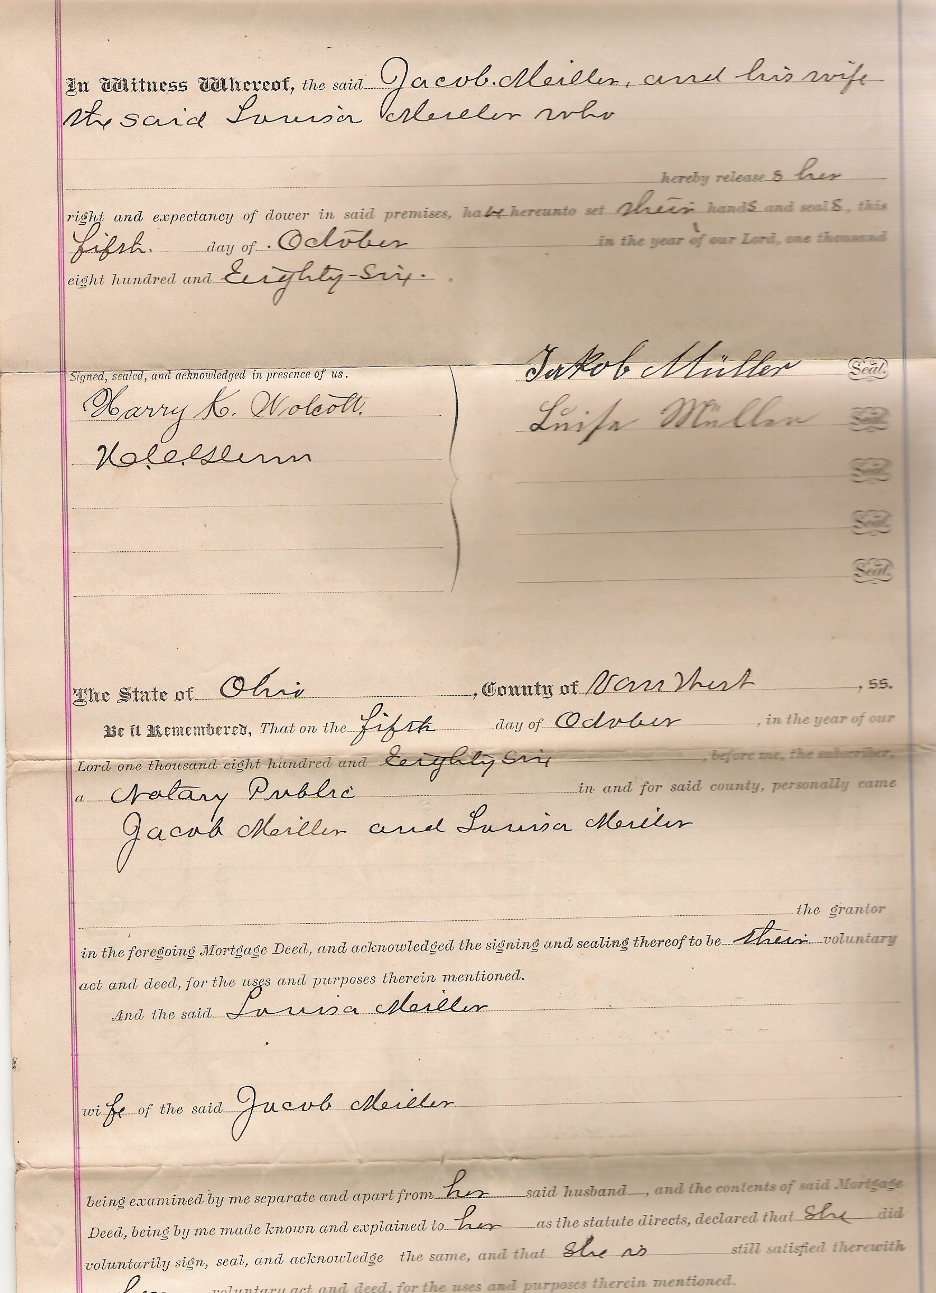 In Witness Whereof, the said Jacob Meiller, and his wife
the said Louisa Meiller who
hereby releases her
right and expectancy of dower in said premises, have hereunto set their hands and seals, this
fifth day of October in the year of our Lord, one thousand
eight hundred and Eeighty-Six.
Signed, sealed, and acknowledged in presence of us.
Jakob Müller Seal.
Harry K. Wolcott.
Luise Müller Seal.
Seal.
Seal.
Seal.
The State of Ohio, County of Van Wert, ss.
Be it Remembered, That on the fifth day of October, in the year of our
Lord one thousand eight hundred and Eeighty Six, before me, the subscriber,
a Notary Public in and for said county, personally came
Jacob Meiller and Louisa Meiller
the grantor
in the foregoing Mortgage Deed, and acknowledged the signing and sealing thereof to be their voluntary
act and deed, for the uses and purposes therein mentioned.
And the said Louisa Meiller
wife of the said Jacob Meiller
being examined by me separate and apart from her said husband, and the contents of said Mortgage
Deed, being by me made known and explained to her as the statute directs, declared that she did
voluntarily sign, seal, and acknowledge the same, and that she is still satisfied therewith
voluntary act and deed, for the uses and purposes therein mentioned.